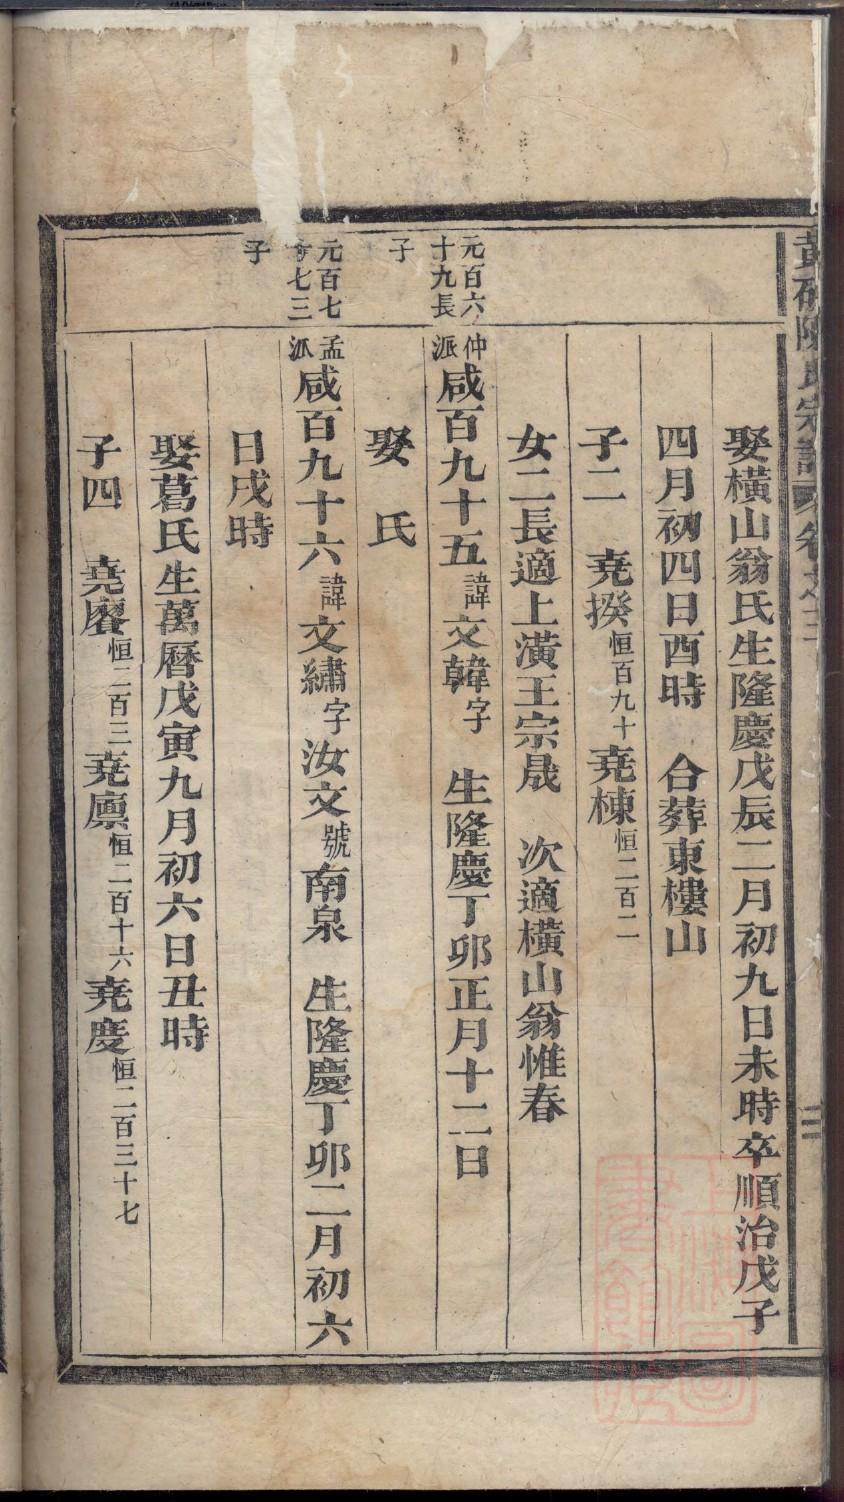 娶橫山翁氏生隆慶戊辰二月初九日未時卒順治戊子
四月初四日酉時　合葬東樓山
子二　堯揆恒百九十堯棟恒二百二
女二長適上潢王宗晟　次適橫山翁惟春
元百六十九長子
仲派咸百九十五諱文韓字　生隆慶丁卯正月十二日
娶　氏
元百七十七三子
孟派咸百九十六諱文繡字汝文號南泉　生隆慶丁卯二月初六
日戌時
娶葛氏生萬曆戊寅九月初六日丑時
子四　堯賡恒二百三堯廪恒二百十六堯慶恒二百三十七